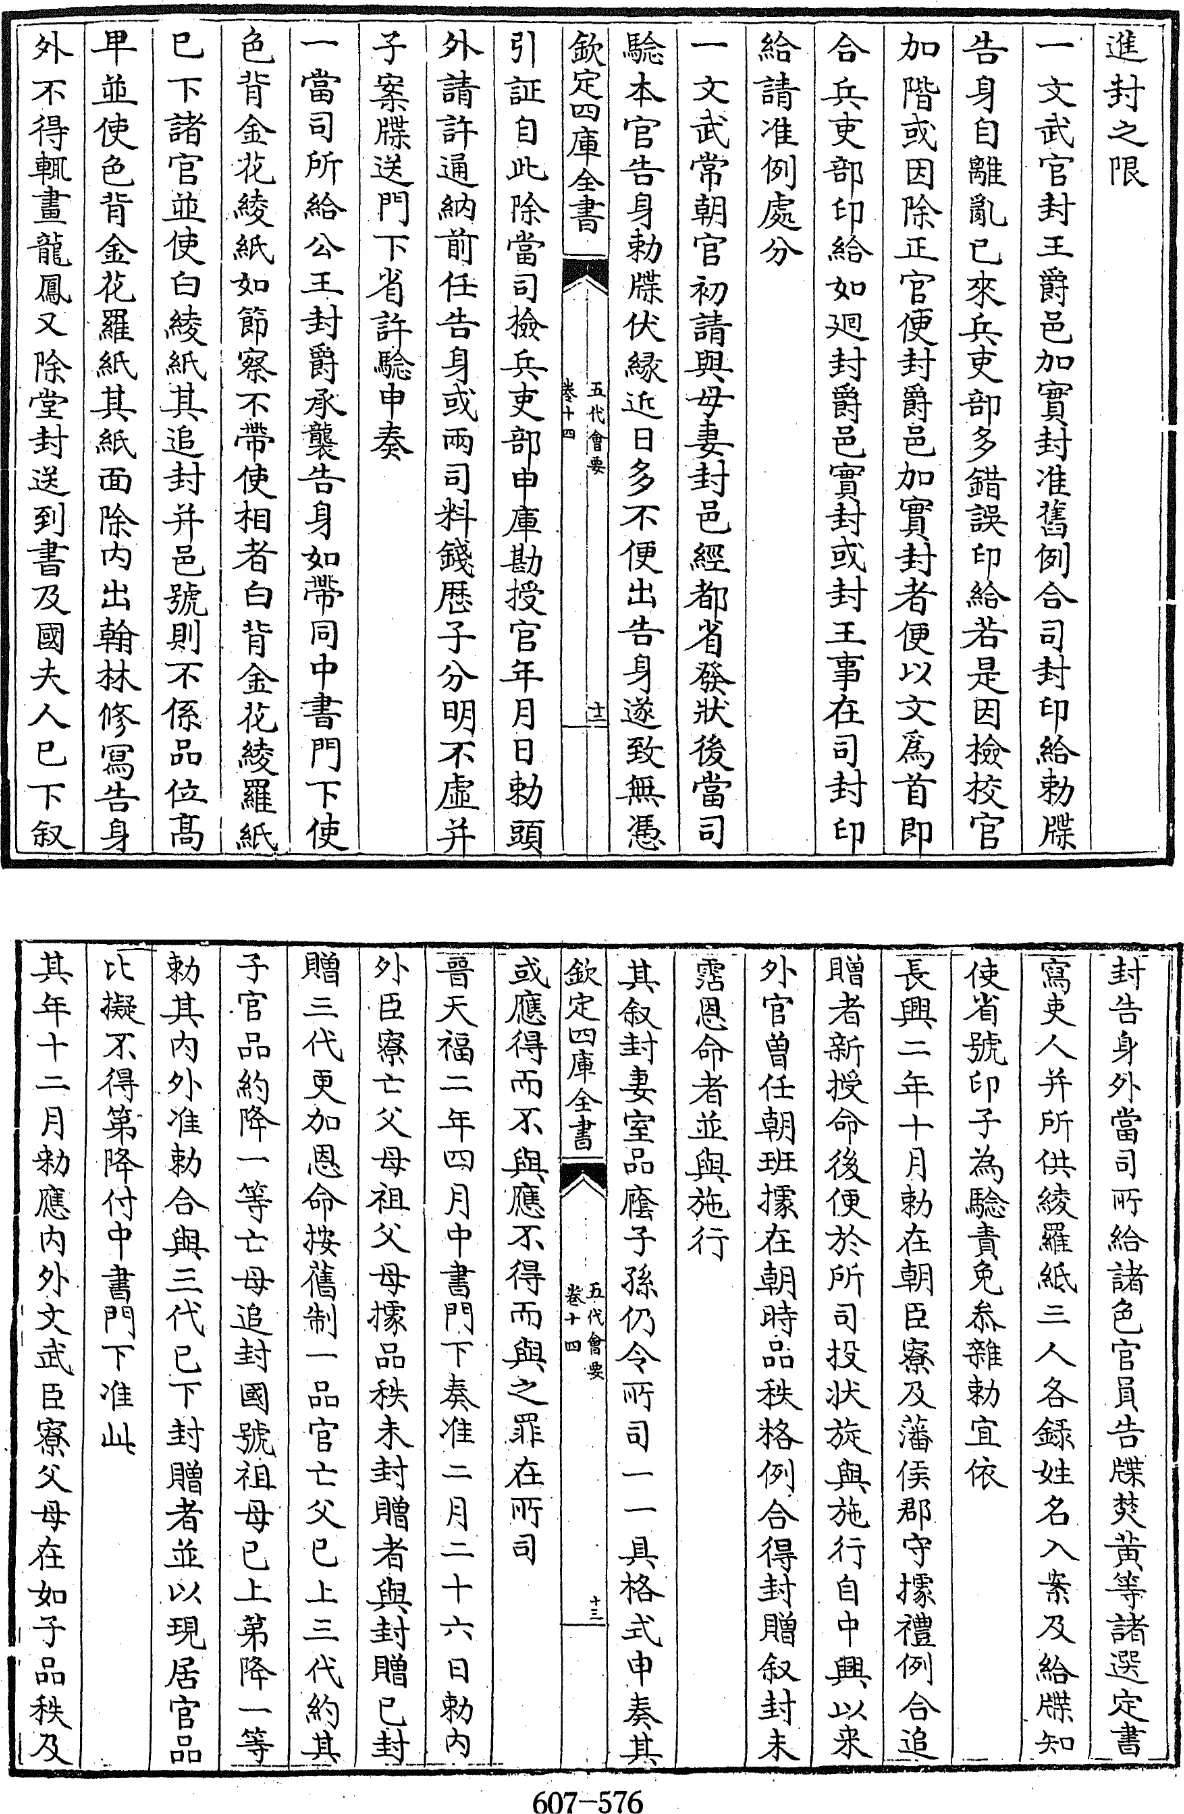 進封之限
一文武官封王爵邑加實封准舊例合司封印給勅牒
告身自離亂已來兵吏部多錯誤印給若是因檢校官
加階或因除正官便封爵邑加實封者便以文爲首即
合兵吏部印給如廻封爵邑實封或封王事在司封印
給請准例處分
一文武常朝官初請與母妻封邑經都省發狀後當司
驗本官告身勅牒伏縁近日多不便出告身遂致無憑
欽定四庫全書
五代會要
卷十四
十二
引証自此除當司檢兵吏部申庫勘授官年月日勅頭
外請許通納前任告身或兩司料錢歴子分明不虛并
子案牒送門下省許驗申奏
一當司所給公王封爵承襲告身如帶同中書門下使
色背金花綾紙如節察不帶使相者白背金花綾羅紙
已下諸官並使白綾紙其追封并邑號則不係品位髙
甲並使色背金花羅紙其紙面除内出翰林修寫告身
外不得輒畫龍鳳又除堂封送到書及國夫人已下叙
封告身外當司所給諸色官員告牒焚黄等諸選定書
寫吏人并所供綾羅紙三人各錄姓名入案及給牒知
使省號印子為驗責免叅雜勅宜依
長興二年十月勅在朝臣寮及藩侯郡守據禮例合追
贈者新授命後便於所司投狀旋與施行自中興以來
外官曾任朝班據在朝時品秩格例合得封贈叙封未
霑恩命者並與施行
其叙封妻室品䕃子孫仍令所司一一具格式申奏其
欽定四庫全書
五代會要
卷十四
十三
或應得而不與應不得而與之罪在所司
晉天福二年四月中書門下奏准二月二十六日勅内
外臣寮亡父母祖父母據品秩未封贈者與封贈已封
贈三代更加恩命按舊制一品官亡父已上三代約其
子官品約降一等亡母追封國號祖母已上第降一等
勅其内外准勅合與三代已下封贈者並以現居官品
比擬不得第降付中書門下准此
其年十二月勅應内外文武臣寮父母在如子品秩及
607-576